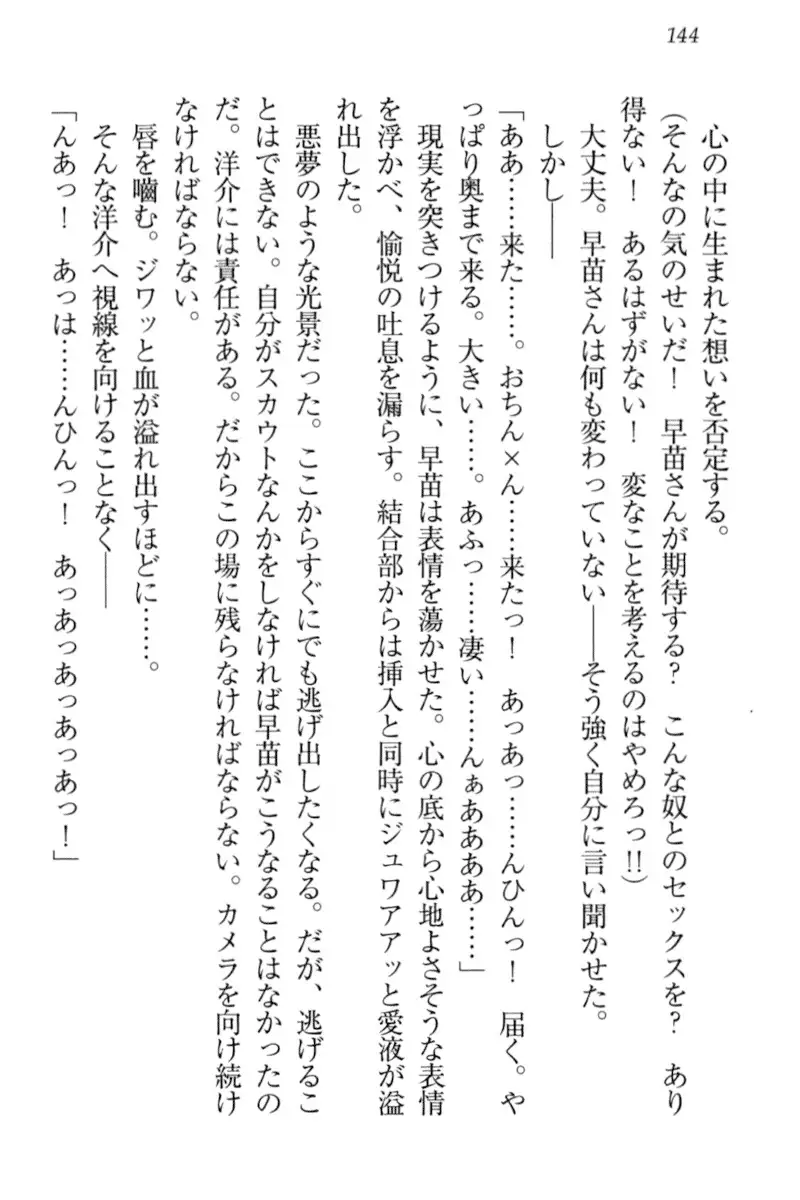 144
　心の中に生まれた想いを否定する。
（そんなの気のせいだ！　早苗さんが期待する？　こんな奴とのセックスを？　あり
得ない！　あるはずがない！　変なことを考えるのはやめろっ!!）
　大丈夫。早苗さんは何も変わっていない――そう強く自分に言い聞かせた。
　しかし――
「ああ……来た……。おちん×ん……来たっ！　あっあっ……んひんっ！　届く。や
っぱり奥まで来る。大きい……。あふっ……凄い……んぁああああ……」
　現実を突きつけるように、早苗は表情を蕩かせた。心の底から心地よさそうな表情
を浮かべ、愉悦の吐息を漏らす。結合部からは挿入と同時にジュワアアッと愛液が溢
れ出した。
　悪夢のような光景だった。ここからすぐにでも逃げ出したくなる。だが、逃げるこ
とはできない。自分がスカウトなんかをしなければ早苗がこうなることはなかったの
だ。洋介には責任がある。だからこの場に残らなければならない。カメラを向け続け
なければならない。
　唇を嚙む。ジワッと血が溢れ出すほどに……。
　そんな洋介へ視線を向けることなく――
「んあっ！　あっは……んひんっ！　あっあっあっあっあっ！」